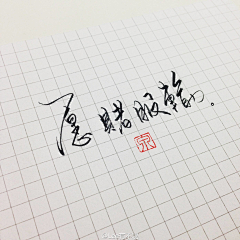 愿赌服输。